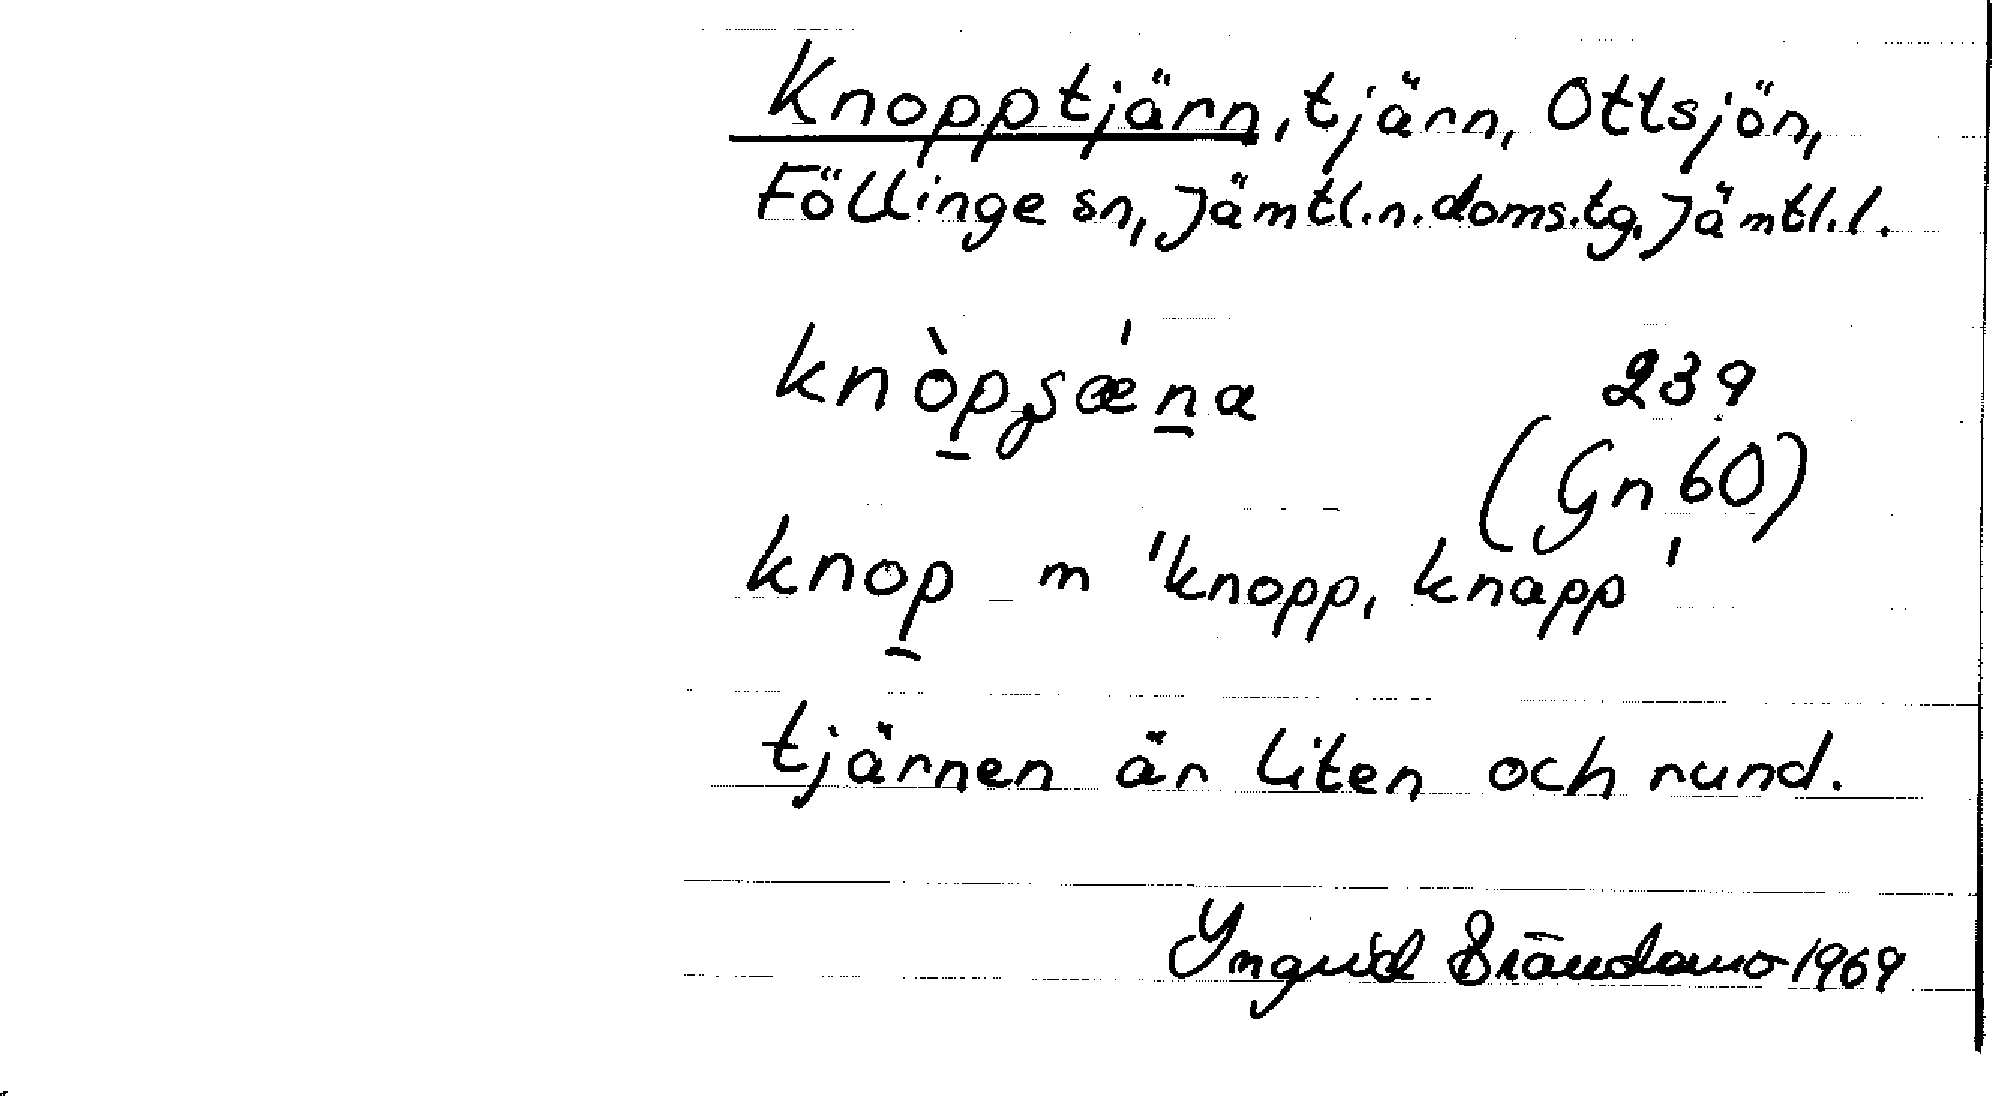 Knopptjärn, tjärn, Ottsjön,
Föllinge sn, Jämtl.n.doms.tg. Jämtl.l.
239
(Gn 60)
knop m 'knopp, knapp'
tjärnen är liten och rund.
Yngvild Brändamo 1969